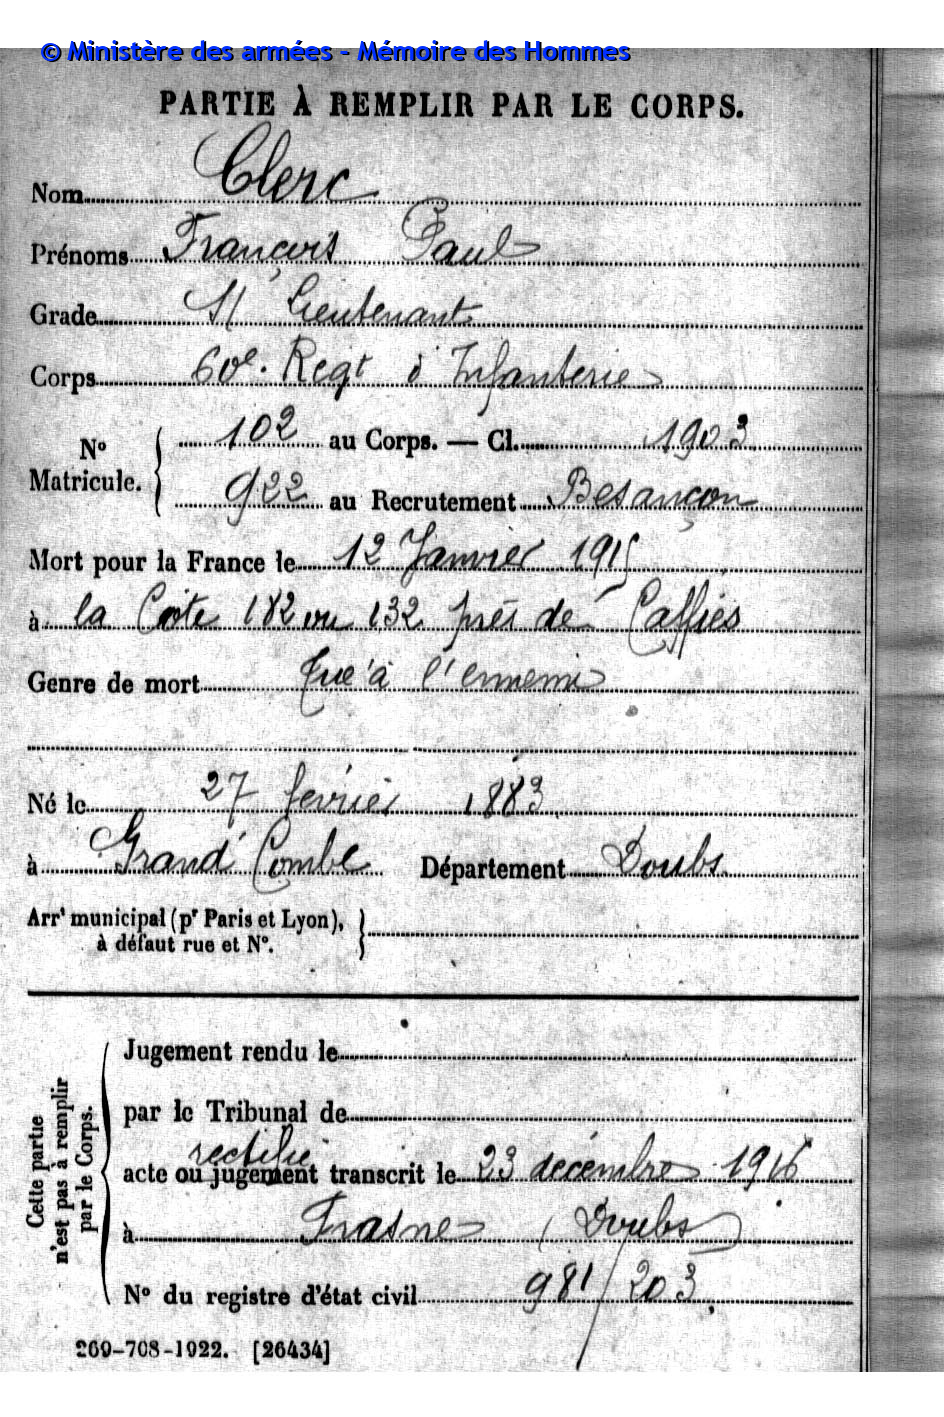 © Ministère des armées - Mémoire des Hommes
PARTIE À REMPLIR PAR LE CORPS.
Nom Clerc
Prénoms François Paul
Grade S/ Lieutenant
Corps 60e. Regt d'Infanterie
No Matricule. 102 au Corps. — Cl. 1903
922 au Recrutement Besançon
Mort pour la France le 12 Janvier 1915
à la Côte 182 ou 132 près de Caffies
Genre de mort Tué à l'ennemi
Né le 27 février 1883
à Grand Combe Département Doubs
Arrt municipal (pr Paris et Lyon),
à défaut rue et No.
Cette partie n'est pas à remplir par le Corps.
Jugement rendu le
par le Tribunal de
rectifié
acte ou jugement transcrit le 23 décembre 1916
à Frasne (Doubs)
No du registre d'état civil 981/203
269-708-1922. [26434]